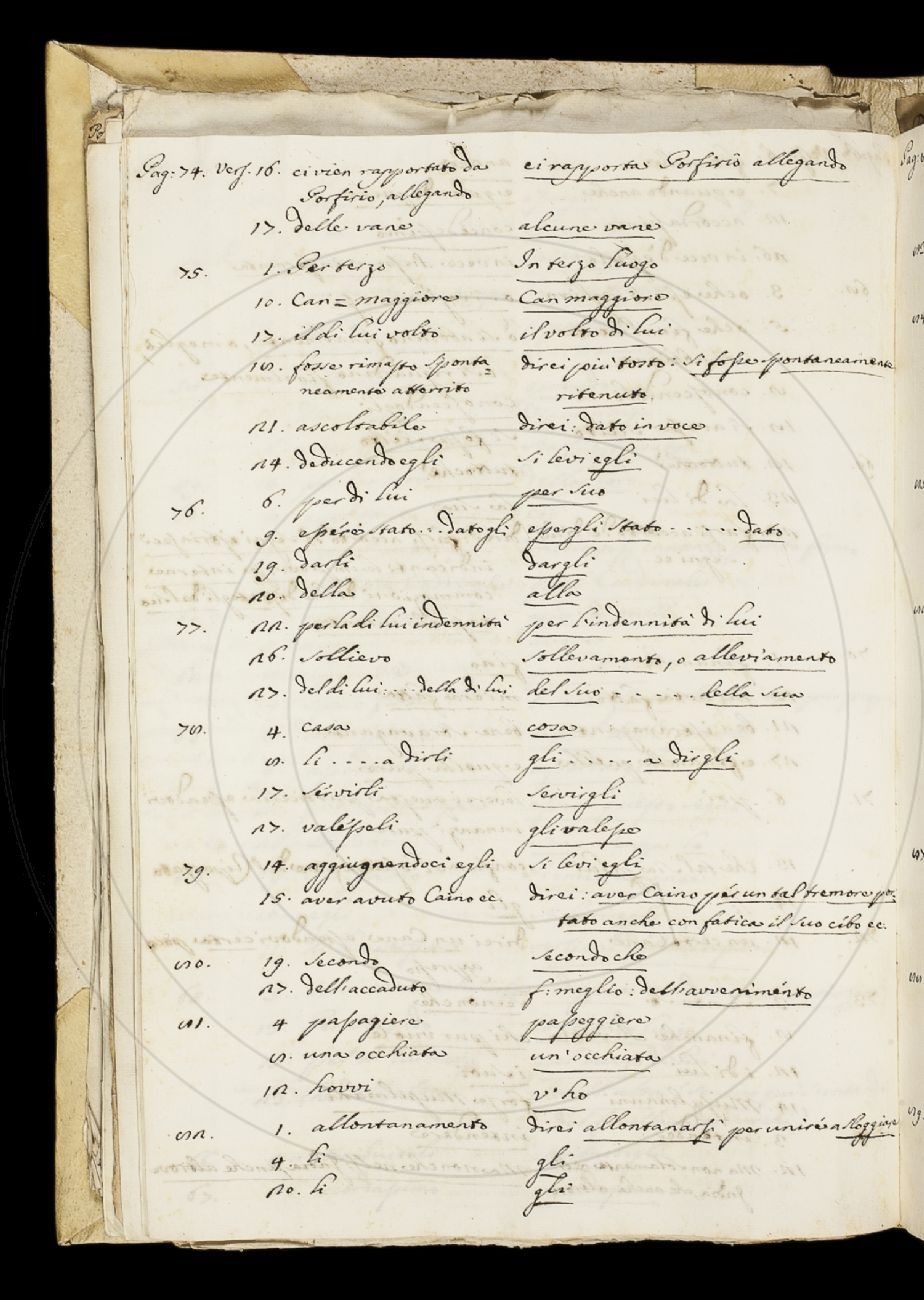 Pag: 74. Vers. 16. ci vien rapportato da ci rapporta Porfirio allegando
Porfirio, allegando
17. delle vane alcune vane
75. 1. Per terzo In terzo luogo
10. Can= maggiore Can maggiore
17. il di lui volto il volto di lui
18. fosse rimasto sponta= direi più tosto: si fosse spontaneamente
neamente atterrito ritenuto.
21. ascoltabile direi: dato in voce
24. deducendo egli Si levi egli
76. 6. per di lui per suo
9. e per è stato... datogli e per gli stato ..... dato
19. darli dargli
20. della alla
77. 22. per la di lui indennità per l'indennità di lui
26. sollievo sollevamento, o alleviamento
27. del di lui .... della di lui del suo ...... della sua
78. 4. casa cosa
8. li .... a dirli gli ..... a dirgli
17. servirli servirgli
27. valesseli gli valesse
79. 14. aggiugnendoci egli Si levi egli
15. aver avuto Caino ec. direi: aver Caino per un tal tremore por=
tato anche con fatica il suo cibo ec.
80. 19. secondo secondo che
27. dell'accaduto f: meglio: dell'avvenimento
81. 4 passagiere passeggiere
8. una occhiata un'occhiata
12. hovvi v'ho
82. 1. allontanamento direi allontanarsi per unire a
4. li gli
20. li gli